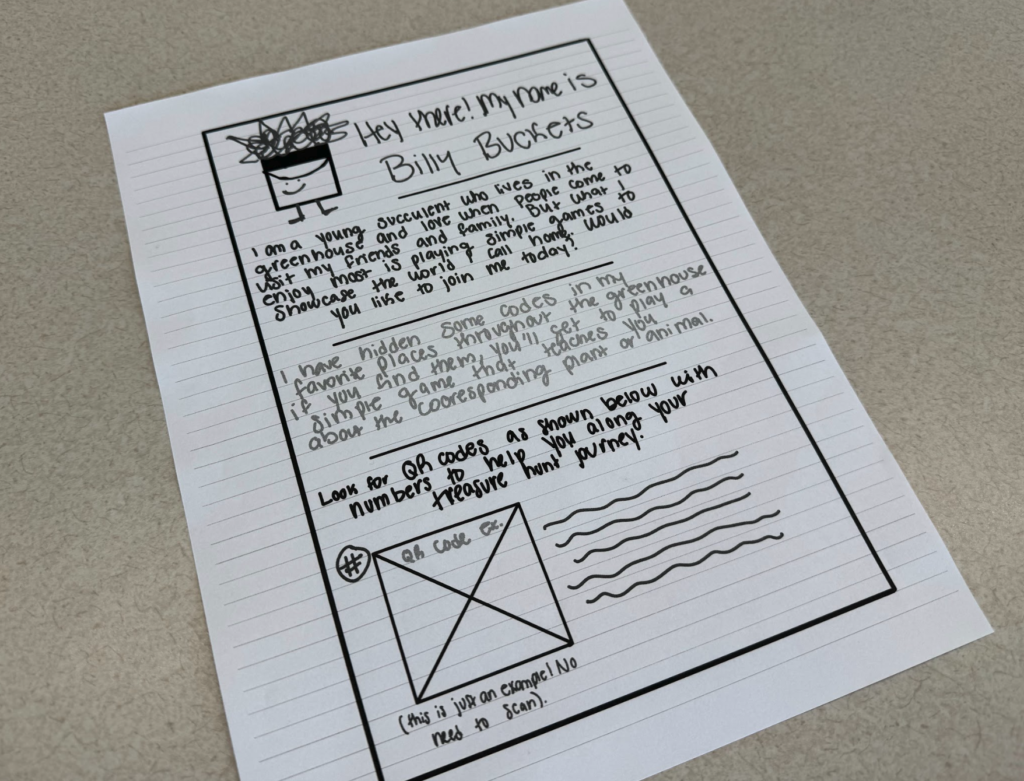 Hey there! My name is
Billy Buckets
I am a young succulent who lives in the
greenhouse and love when people come to
visit my friends and family. But what I
enjoy most is playing simple games to
showcase the world I call home. Would
you like to join me today?
I have hidden some codes in my
favorite places throughout the greenhouse
if you find them, you'll get to play a
simple game that teaches you
about the cooresponding plant or animal.
Look for QR codes as shown below with
numbers to help you along your
treasure hunt journey!
#
QR code ex.
(this is just an example! No
need to scan).